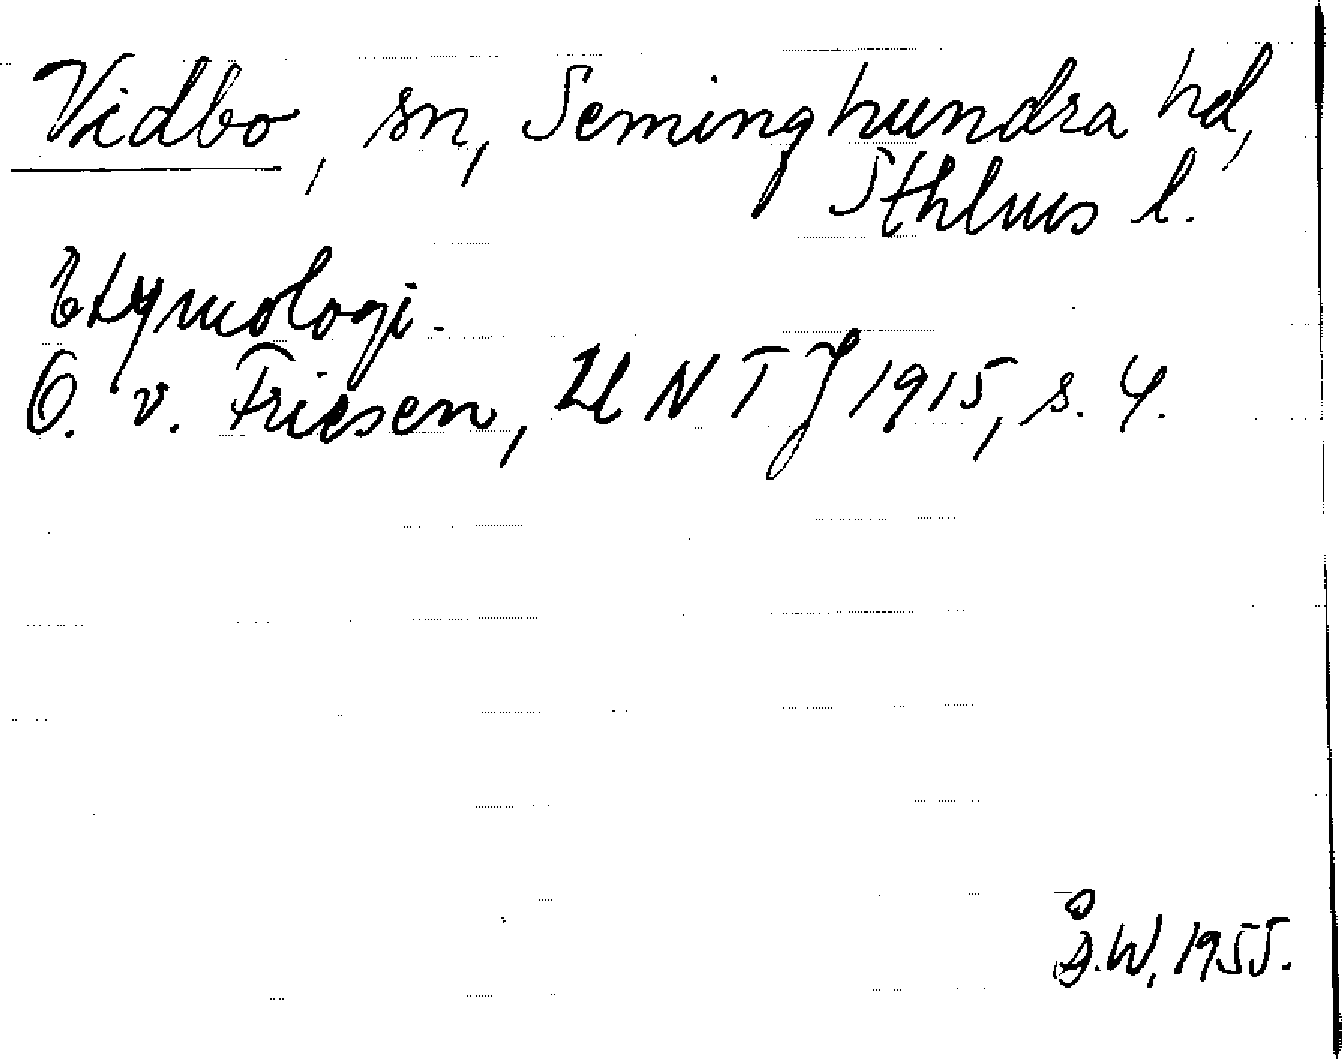 Vidbo, sn, Seminghundra hd,
Sthlms l.
Etymologi.
O. v. Friesen, UNTJ 1915, s. 4.
Å.W, 1955.